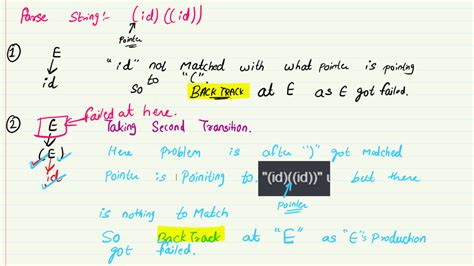 Parse String:- (id)((id))
Pointer
① E
id
"id" not Matched with what pointer is pointing
to "(".
So BACKTRACK at E as E got failed.
② E failed at here.
(E)
id
Taking Second Transition.
Here Problem is after ")" got matched
Pointer is Pointing to "(id)((id))" but there
Pointer
is nothing to Match
So BackTrack at "E" as "E"'s Production
got failed.